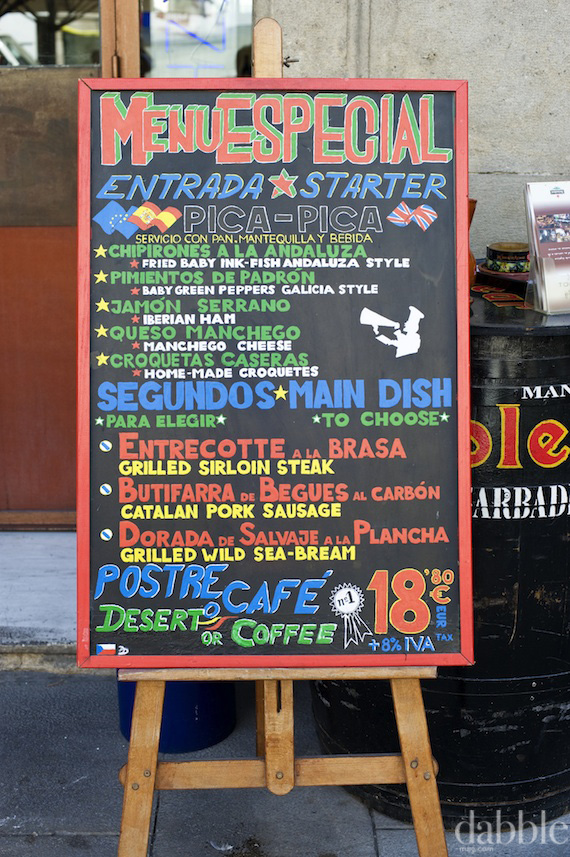 MENU ESPECIAL
ENTRADA STARTER
PICA-PICA
SERVICIO CON PAN, MANTEQUILLA Y BEBIDA
CHIPIRONES A LA ANDALUZA
FRIED BABY INK-FISH ANDALUZA STYLE
PIMIENTOS DE PADRÓN
BABY GREEN PEPPERS GALICIA STYLE
JAMÓN SERRANO
IBERIAN HAM
QUESO MANCHEGO
MANCHEGO CHEESE
CROQUETAS CASERAS
HOME-MADE CROQUETES
SEGUNDOS MAIN DISH
PARA ELEGIR TO CHOOSE
ENTRECOTTE A LA BRASA
GRILLED SIRLOIN STEAK
BUTIFARRA DE BEGUES AL CARBÓN
CATALAN PORK SAUSAGE
DORADA DE SALVAJE A LA PLANCHA
GRILLED WILD SEA-BREAM
POSTRE O CAFÉ
DESERT OR COFFEE
nº1
18'80 € EUR
+8% IVA TAX
MAN
ole
ARBAD
dabble
mag.com